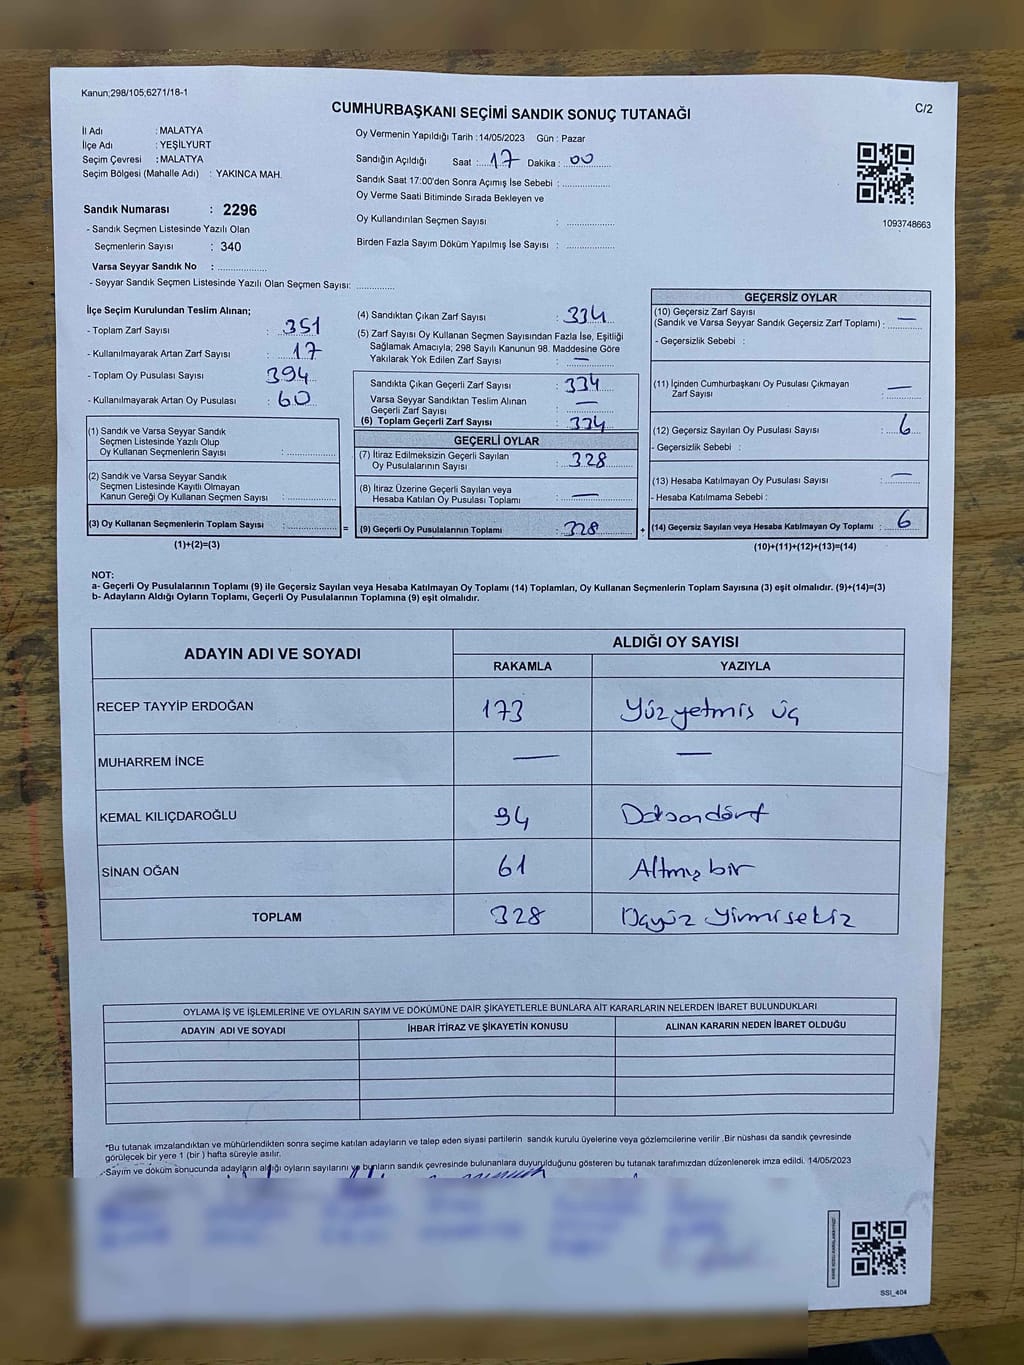 Kanun;298/105;6271/18-1
C/2
CUMHURBAŞKANI SEÇİMİ SANDIK SONUÇ TUTANAĞI
İl Adı : MALATYA
İlçe Adı : YEŞİLYURT
Seçim Çevresi : MALATYA
Seçim Bölgesi (Mahalle Adı) : YAKINCA MAH.
Sandık Numarası : 2296
- Sandık Seçmen Listesinde Yazılı Olan
Seçmenlerin Sayısı : 340
Varsa Seyyar Sandık No :
- Seyyar Sandık Seçmen Listesinde Yazılı Olan Seçmen Sayısı:
Oy Vermenin Yapıldığı Tarih : 14/05/2023 Gün : Pazar
Sandığın Açıldığı Saat : 17 Dakika : 00
Sandık Saat 17:00'den Sonra Açımış İse Sebebi :
Oy Verme Saati Bitiminde Sırada Bekleyen ve
Oy Kullandırılan Seçmen Sayısı :
Birden Fazla Sayım Döküm Yapılmış İse Sayısı :
1093748663
İlçe Seçim Kurulundan Teslim Alınan;
- Toplam Zarf Sayısı : 351
- Kullanılmayarak Artan Zarf Sayısı : 17
- Toplam Oy Pusulası Sayısı : 394
- Kullanılmayarak Artan Oy Pusulası : 60
(1) Sandık ve Varsa Seyyar Sandık
Seçmen Listesinde Yazılı Olup
Oy Kullanan Seçmenlerin Sayısı :
(2) Sandık ve Varsa Seyyar Sandık
Seçmen Listesinde Kayıtlı Olmayan
Kanun Gereği Oy Kullanan Seçmen Sayısı :
(3) Oy Kullanan Seçmenlerin Toplam Sayısı : =
(1)+(2)=(3)
(4) Sandıktan Çıkan Zarf Sayısı : 334
(5) Zarf Sayısı Oy Kullanan Seçmen Sayısından Fazla İse, Eşitliği
Sağlamak Amacıyla; 298 Sayılı Kanunun 98. Maddesine Göre
Yakılarak Yok Edilen Zarf Sayısı : —
Sandıkta Çıkan Geçerli Zarf Sayısı : 334
Varsa Seyyar Sandıktan Teslim Alınan —
Geçerli Zarf Sayısı :
(6) Toplam Geçerli Zarf Sayısı : 334
GEÇERLİ OYLAR
(7) İtiraz Edilmeksizin Geçerli Sayılan
Oy Pusulalarının Sayısı : 328
(8) İtiraz Üzerine Geçerli Sayılan veya
Hesaba Katılan Oy Pusulası Toplamı : —
(9) Geçerli Oy Pusulalarının Toplamı : 328 +
GEÇERSİZ OYLAR
(10) Geçersiz Zarf Sayısı
(Sandık ve Varsa Seyyar Sandık Geçersiz Zarf Toplamı) : —
- Geçersizlik Sebebi :
(11) İçinden Cumhurbaşkanı Oy Pusulası Çıkmayan
Zarf Sayısı : —
(12) Geçersiz Sayılan Oy Pusulası Sayısı : 6
- Geçersizlik Sebebi :
(13) Hesaba Katılmayan Oy Pusulası Sayısı : —
- Hesaba Katılmama Sebebi :
(14) Geçersiz Sayılan veya Hesaba Katılmayan Oy Toplamı : 6
(10)+(11)+(12)+(13)=(14)
NOT:
a- Geçerli Oy Pusulalarının Toplamı (9) ile Geçersiz Sayılan veya Hesaba Katılmayan Oy Toplamı (14) Toplamları, Oy Kullanan Seçmenlerin Toplam Sayısına (3) eşit olmalıdır. (9)+(14)=(3)
b- Adayların Aldığı Oyların Toplamı, Geçerli Oy Pusulalarının Toplamına (9) eşit olmalıdır.
ADAYIN ADI VE SOYADI ALDIĞI OY SAYISI
RAKAMLA YAZIYLA
RECEP TAYYİP ERDOĞAN 173 Yüzyetmiş üç
MUHARREM İNCE — —
KEMAL KILIÇDAROĞLU 94 Doksandört
SİNAN OĞAN 61 Altmışbir
TOPLAM 328 Üçyüz Yirmisekiz
OYLAMA İŞ VE İŞLEMLERİNE VE OYLARIN SAYIM VE DÖKÜMÜNE DAİR ŞİKAYETLERLE BUNLARA AİT KARARLARIN NELERDEN İBARET BULUNDUKLARI
ADAYIN ADI VE SOYADI İHBAR İTİRAZ VE ŞİKAYETİN KONUSU ALINAN KARARIN NEDEN İBARET OLDUĞU
*Bu tutanak imzalandıktan ve mühürlendikten sonra seçime katılan adayların ve talep eden siyasi partilerin sandık kurulu üyelerine veya gözlemcilerine verilir .Bir nüshası da sandık çevresinde
görülecek bir yere 1 (bir ) hafta süreyle asılır.
-Sayım ve döküm sonucunda adayların aldığı oyların sayılarını ve bunların sandık çevresinde bulunanlara duyurulduğunu gösteren bu tutanak tarafımızdan düzenlenerek imza edildi. 14/05/2023
SSI_404